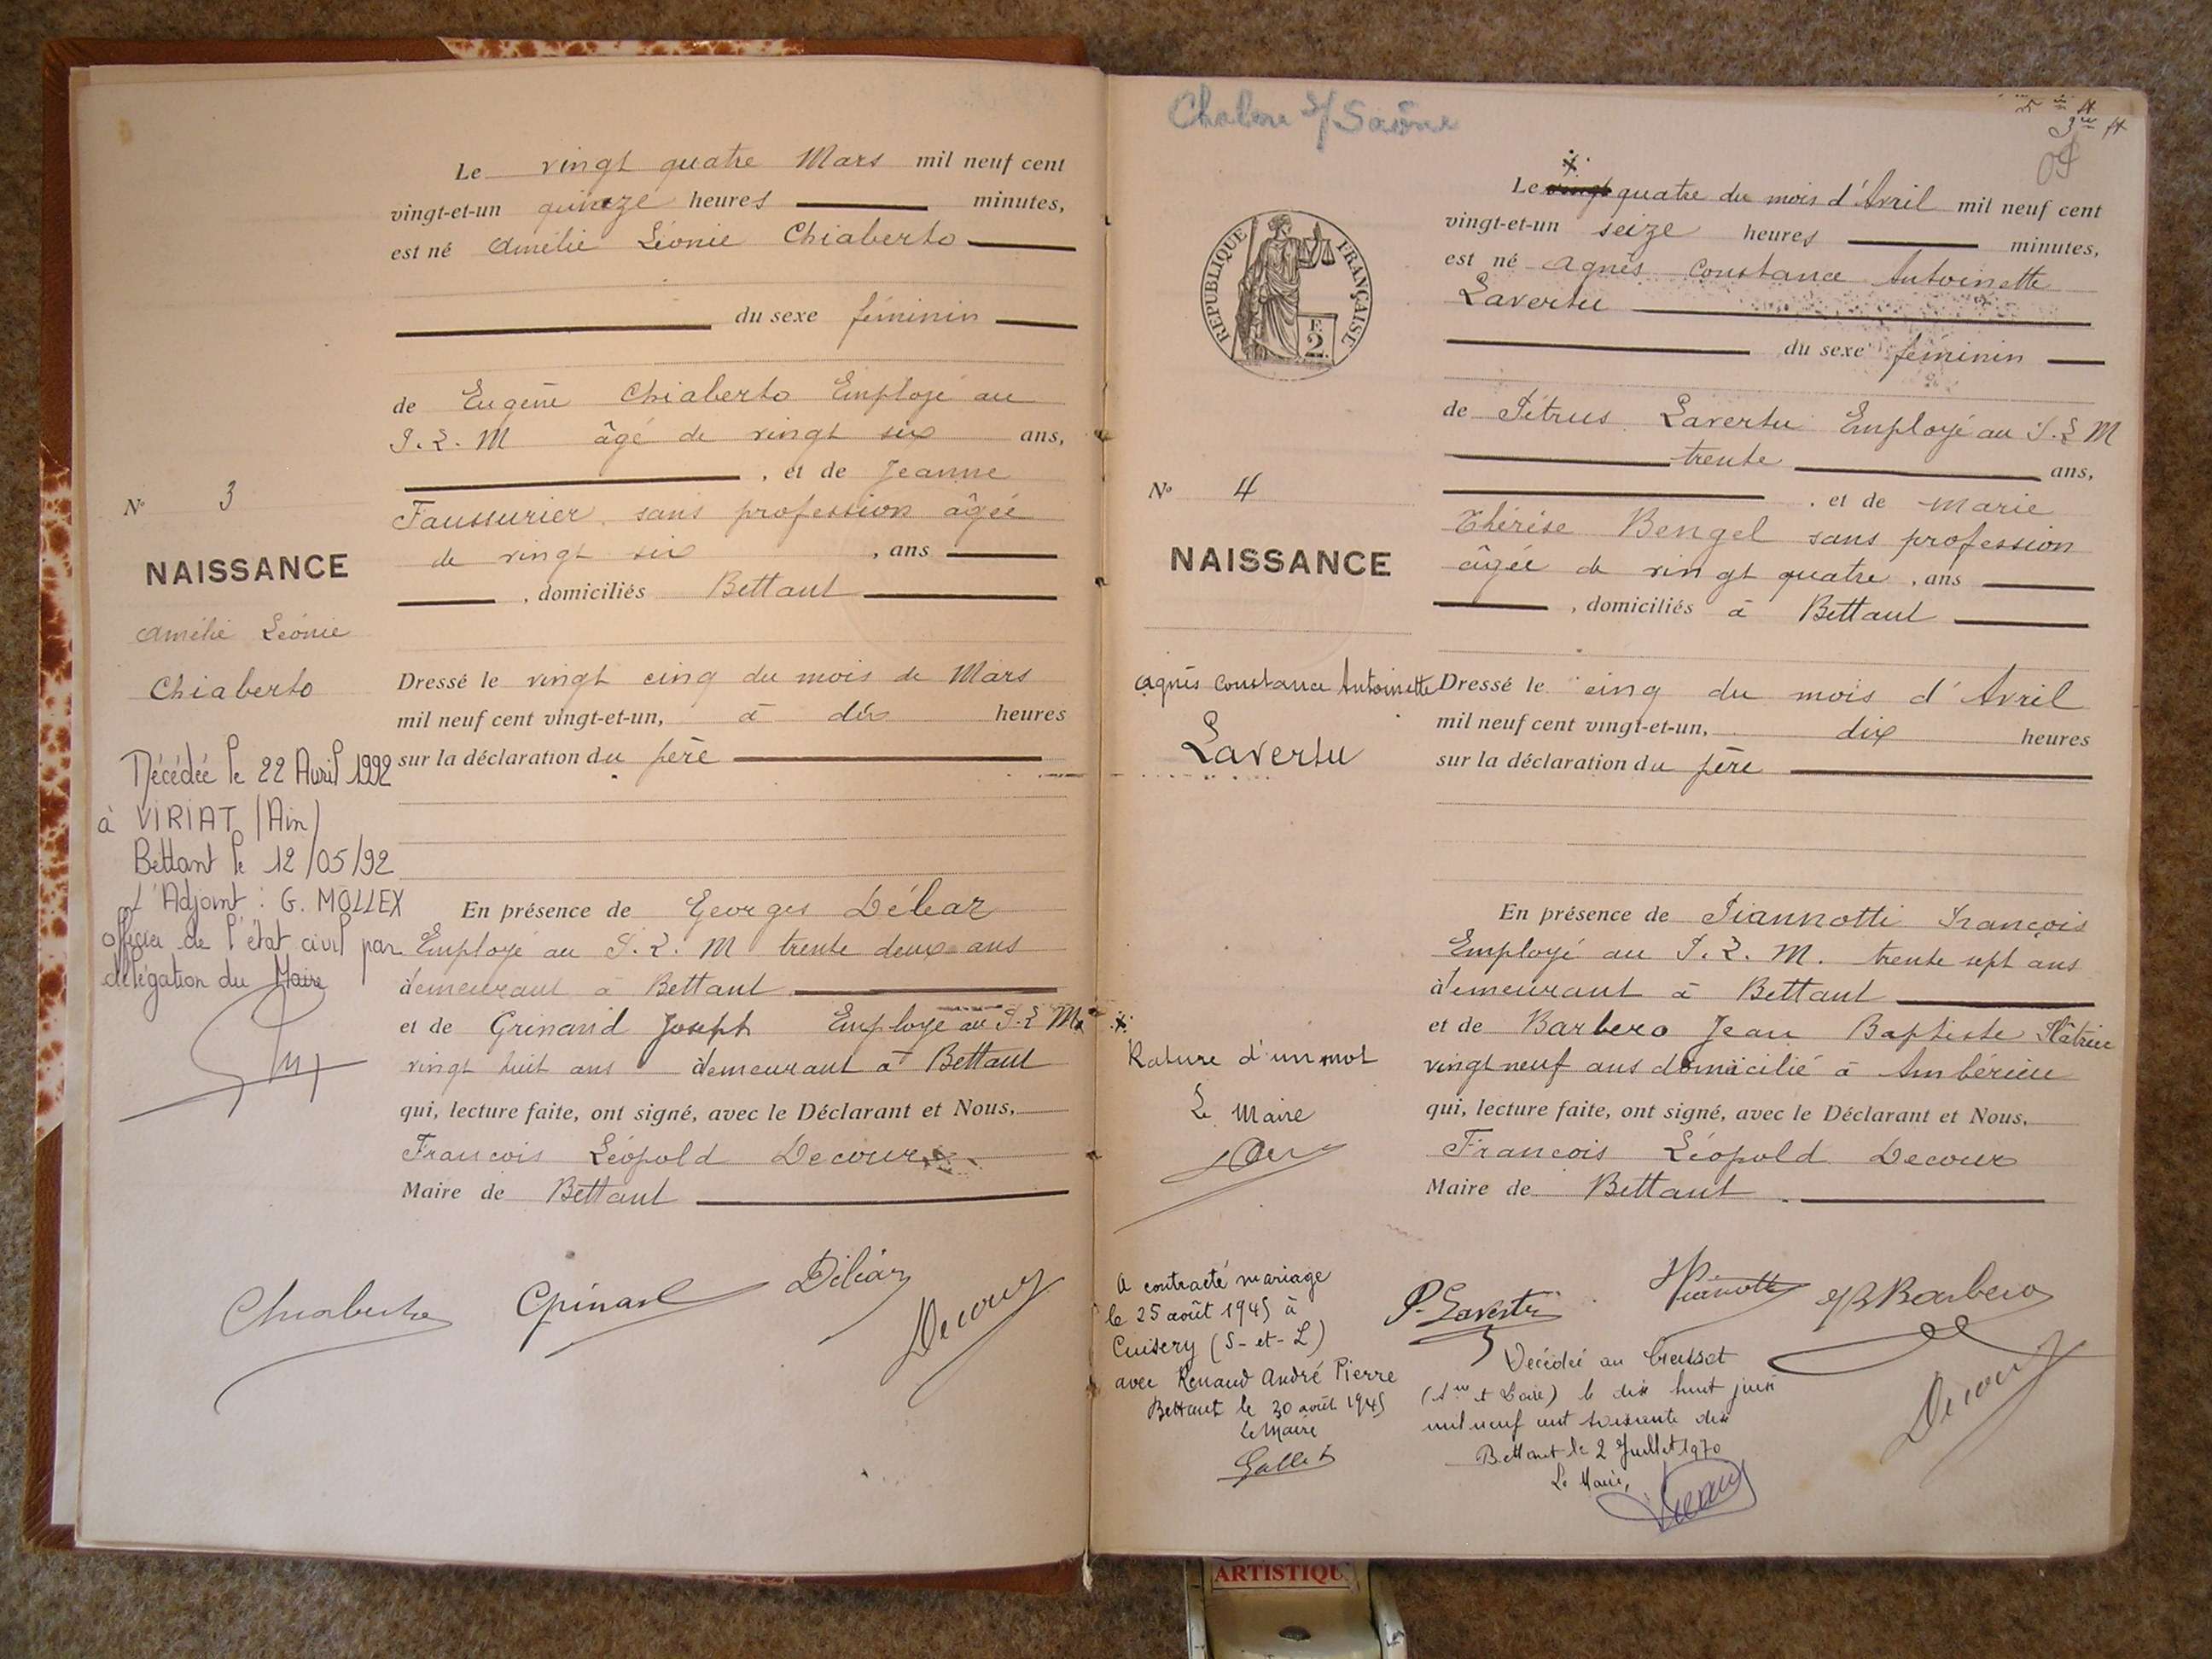 Le vingt quatre Mars mil neuf cent
vingt-et-un quinze heures minutes,
est né Amélie Léonie Chiaberto
du sexe féminin
de Eugène Chiaberto Employé au
P.L.M âgé de vingt six ans,
, et de Jeanne
Faussurier sans profession âgée
de vingt six , ans
, domiciliés Bettant
Dressé le vingt cinq du mois de Mars
mil neuf cent vingt-et-un, à dix heures
sur la déclaration du père
En présence de Georges Débaz
Employé au P.L.M trente deux ans
demeurant à Bettant
et de Grinand Joseph Employé au P.L M
vingt huit ans demeurant à Bettant
qui, lecture faite, ont signé, avec le Déclarant et Nous,
Francois Léopold Decour
Maire de Bettant
No 3
NAISSANCE
Amélie Léonie
Chiaberto
Décédée le 22 Avril 1992
à VIRIAT (Ain)
Bettant le 12/05/92
L'Adjoint : G. MOLLEX
officier de l'état civil par
délégation du Maire
Chiaberto Grinand Decour
Chalon s/Saône
3
Le vingt quatre du mois d'Avril mil neuf cent
vingt-et-un seize heures minutes,
est né Agnès Constance Antoinette
Lavertu
du sexe féminin
de Pétrus Lavertu Employé au P.L M
trente ans,
, et de Marie
Thérèse Bengel sans profession
âgée de vingt quatre , ans
, domiciliés à Bettant
Dressé le cinq du mois d'Avril
mil neuf cent vingt-et-un, dix heures
sur la déclaration du père
En présence de Piannotti François
Employé au P.L.M. trente sept ans
demeurant à Bettant
et de Barbero Jean Baptiste Plâtrier
vingt neuf ans domicilié à Ambérieu
qui, lecture faite, ont signé, avec le Déclarant et Nous,
Francois Léopold Decour
Maire de Bettant
REPUBLIQUE FRANÇAISE
2 F.
No 4
NAISSANCE
Agnès Constance Antoinette
Lavertu
Rature d'un mot
Le Maire
A contracté mariage
le 25 août 1945 à
Cuisery (S-et-L)
avec Renaud André Pierre
Bettant le 30 août 1945
Le Maire
Gallet
P. Lavertu JB Barbero
Decour
Décédée au Creusot
(Sne et Loire) le dix huit juin
mil neuf cent soixante dix
Bettant le 2 Juillet 1970
Le Maire,
ARTISTIQU